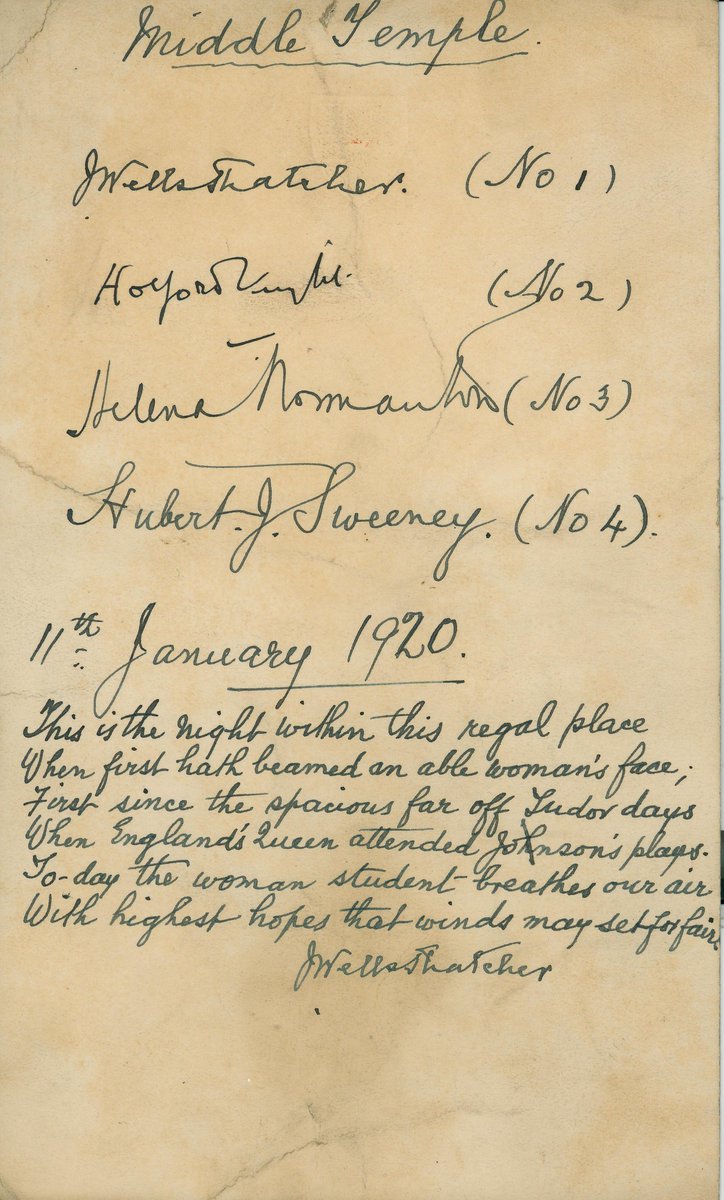 Middle Temple.
J Wells Thatcher. (No 1)
Holford Knight. (No 2)
Helena Normanton (No 3)
Hubert. J. Sweeney. (No 4).
11th January 1920.
This is the night within this regal place
When first hath beamed an able woman's face;
First since the spacious far off Tudor days
When England's Queen attended Johnson's plays.
To-day the woman student breathes our air
With highest hopes that winds may set for fair.
J Wells Thatcher